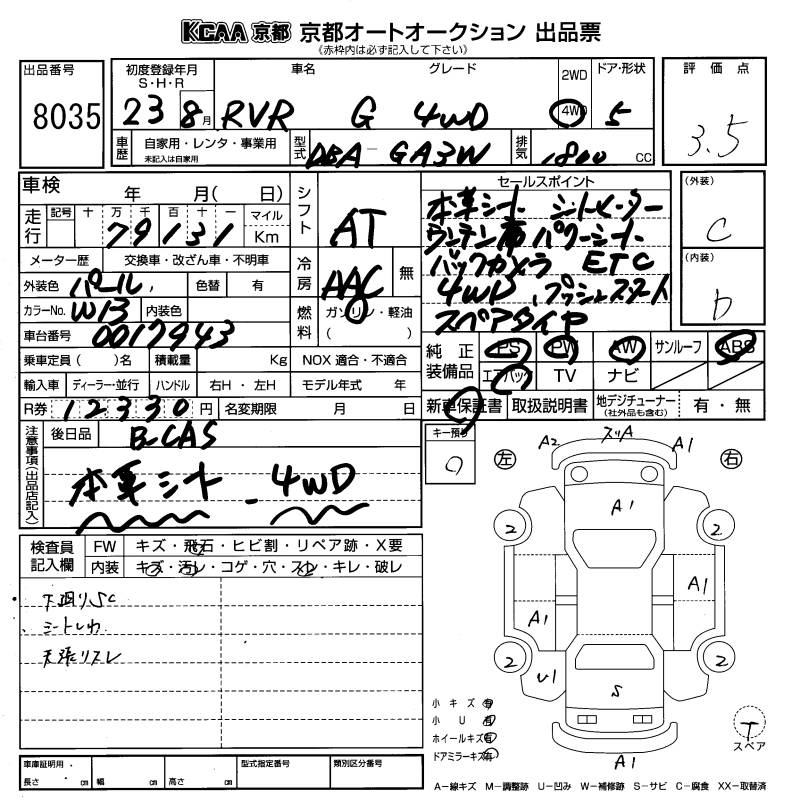 KCAA 京都 京都オートオークション 出品票
(赤枠内は必ず記入して下さい)
出品番号
8035
初度登録年月
S・H・R
23 8月
車名
RVR
グレード
G 4WD
2WD
4WD
ドア・形状
5
車歴
自家用・レンタ・事業用
未記入は自家用
型式
DBA-GA3W
排気
1800 CC
評価点
3.5
車検 年 月( 日)
走行
記号 十 万 千 百 十 一 マイル
79131 Km
メーター歴 交換車・改ざん車・不明車
外装色 パール 色替 有
カラーNo. W13 内装色
車台番号 0017943
シフト
AT
冷房
AAC 無
燃料
ガソリン・軽油
( )
セールスポイント
本革シート シートヒーター
ランテン席パワーシート
バックカメラ ETC
4WD プッシュスタート
スペアタイヤ
(外装)
C
(内装)
D
乗車定員( )名 積載量 Kg NOX 適合・不適合
輸入車 ディーラー・並行 ハンドル 右H・左H モデル年式 年
R券 12330円 名変期限 月 日
純正装備品
PS PW AW サンルーフ ABS
エアバック TV ナビ
新車保証書 取扱説明書 地デジチューナー(社外品も含む) 有・無
注意事項(出品店記入)
後日品 B-CAS
本革シート - 4WD
キー預り
検査員記入欄
FW キズ・飛石・ヒビ割・リペア跡・X要
内装 キズ・汚レ・コゲ・穴・スレ・キレ・破レ
・下廻りSC
・シートしわ
天張リスレ
左
右
A2 スリA A1
A1
2 2
A1
A1
2 2
U1
S
A1
小キズ 有
小U 有
ホイールキズ 有
ドアミラーキズ 有
T
スペア
車庫証明用・
長さ cm 幅 cm 高さ cm
型式指定番号
類別区分番号
A-線キズ M-調整跡 U-凹み W-補修跡 S-サビ C-腐食 XX-取替済